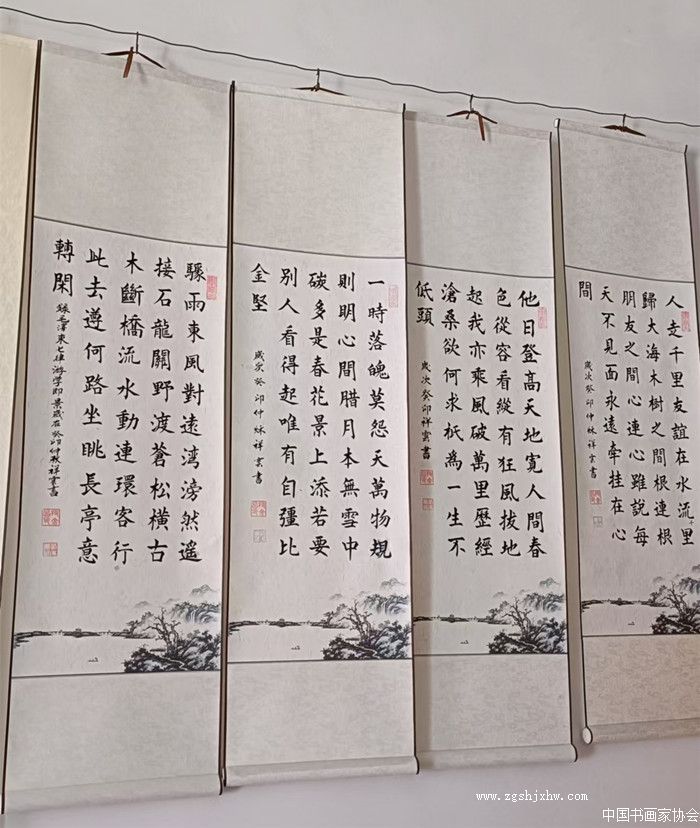 人走千里友誼在水流里
歸大海木樹之間根連根
朋友之間心連心雖說每
天不見面永遠牽挂在心
間
歲次癸卯仲秋祥雲書
他日登高天地寬人間春
色從容看縱有狂風拔地
起我亦乘風破萬里歷經
滄桑欲何求祇為一生不
低頭
歲次癸卯祥雲書
一時落魄莫怨天萬物規
則明心間腊月本無雪中
碳多是春花景上添若要
別人看得起唯有自彊比
金堅
歲次癸卯仲秋祥雲書
驟雨東風對遠灣滂然遥
接石龍關野渡蒼松橫古
木斷橋流水動連環客行
此去遵何路坐眺長亭意
轉閑
錄毛澤東七律游學即景歲在癸卯仲秋祥雲書
www.zgshjxhw.com
中国书画家协会